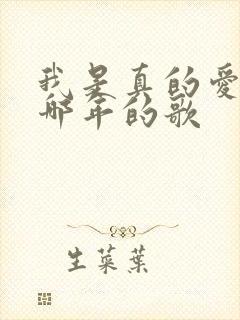 我是真的愛
哪年的歌
生菜葉